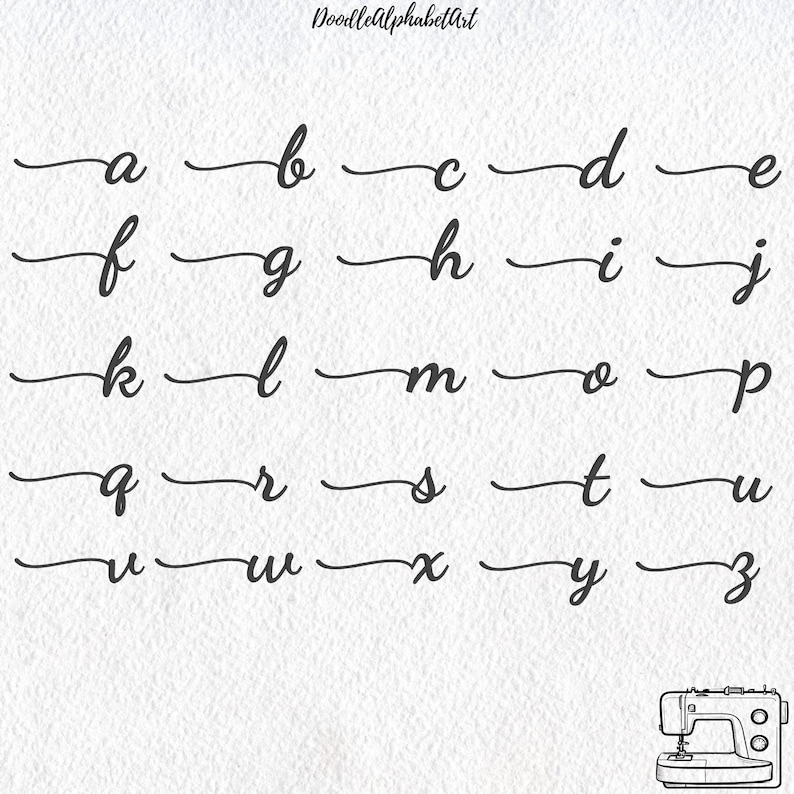 DoodleAlphabetArt
a b c d e
f g h i j
k l m o p
q r s t u
v w x y z